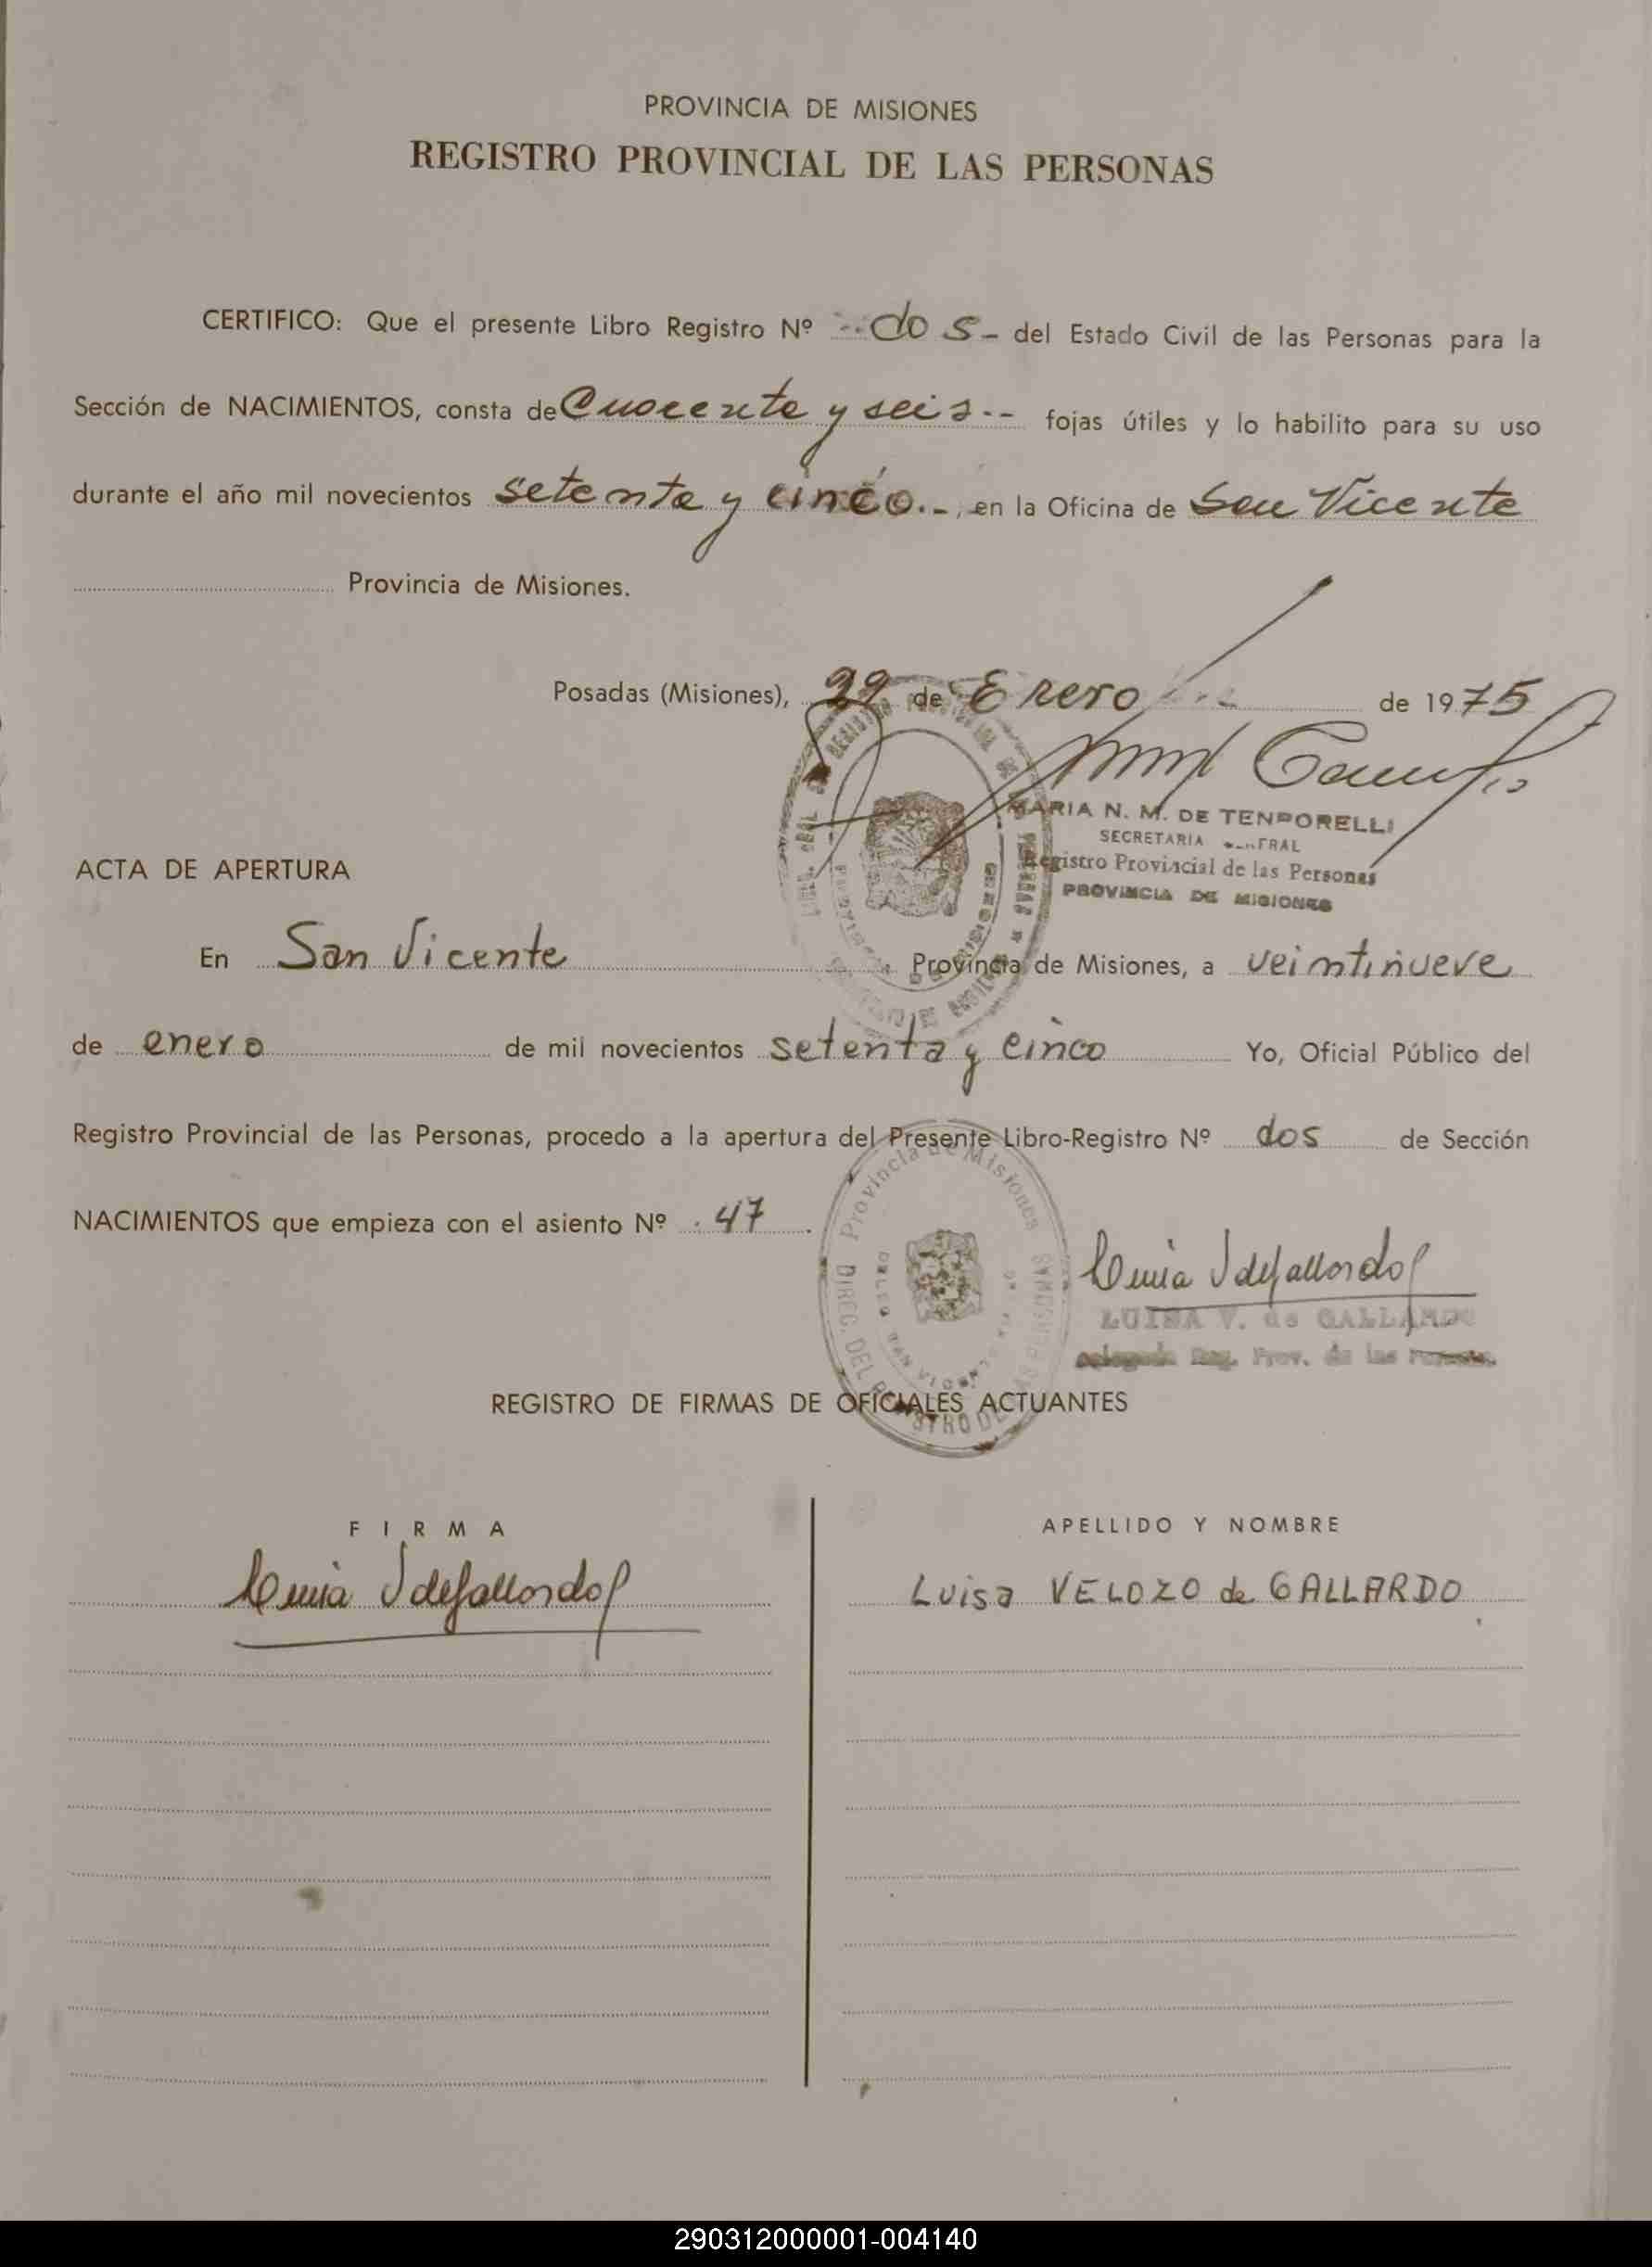 PROVINCIA DE MISIONES
REGISTRO PROVINCIAL DE LAS PERSONAS
CERTIFICO: Que el presente Libro Registro Nº dos - del Estado Civil de las Personas para la
Sección de NACIMIENTOS, consta de Cuarenta y seis.-- fojas útiles y lo habilito para su uso
durante el año mil novecientos setenta y cinco.-, en la Oficina de San Vicente
Provincia de Misiones.
Posadas (Misiones), 29 de Enero de 1975
MARIA N. M. DE TENPORELLI
SECRETARIA
Registro Provincial de las Personas
PROVINCIA DE MISIONES
ACTA DE APERTURA
En San Vicente Provincia de Misiones, a veintinueve
de enero de mil novecientos setenta y cinco Yo, Oficial Público del
Registro Provincial de las Personas, procedo a la apertura del Presente Libro-Registro Nº dos de Sección
NACIMIENTOS que empieza con el asiento Nº 47
Provincia de Misiones
DIREC. DEL REGISTRO DE LAS PERSONAS
Luisa V de Gallardo
LUISA V. de GALLARDO
Delegada Reg. Prov. de las
REGISTRO DE FIRMAS DE OFICIALES ACTUANTES
FIRMA
APELLIDO Y NOMBRE
Luisa V de Gallardo
Luisa VELOZO de GALLARDO
290312000001-004140